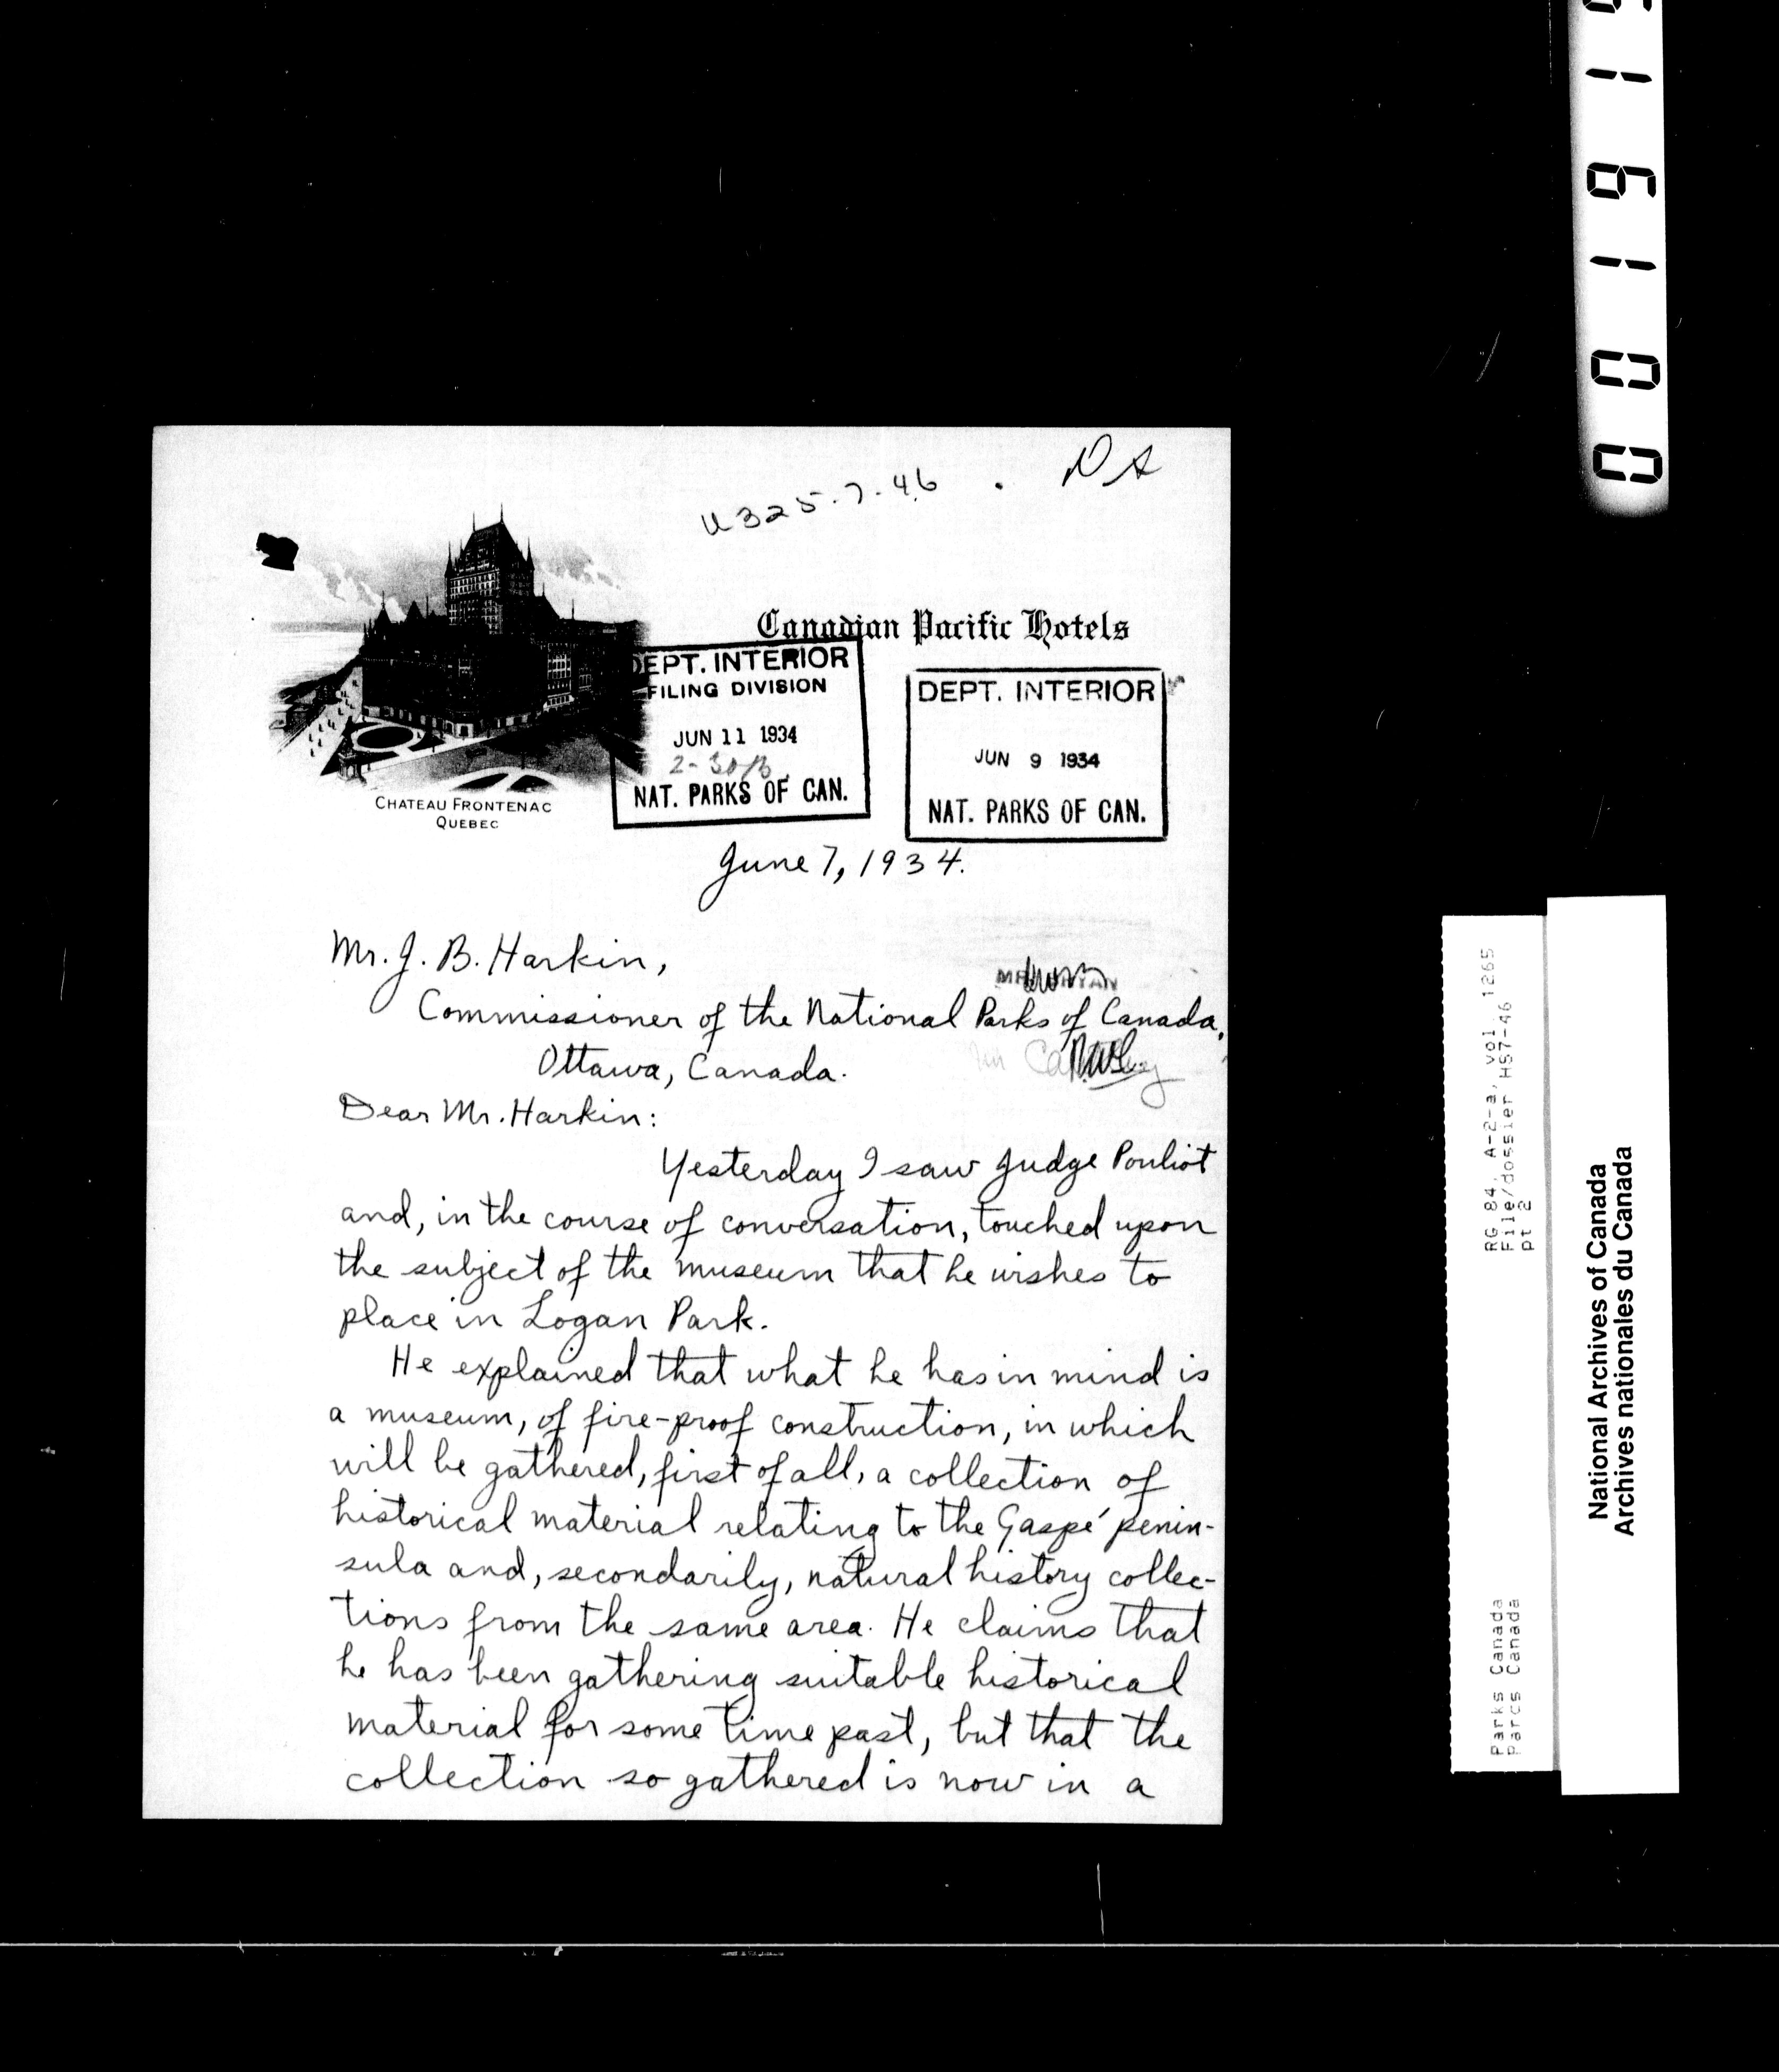 U325-7-46.
Canadian Pacific Hotels
DEPT. INTERIOR
FILING DIVISION
JUN 11 1934
NAT. PARKS OF CAN.
DEPT. INTERIOR
JUN 9 1934
NAT. PARKS OF CAN.
CHATEAU FRONTENAC
QUEBEC
June 7, 1934.
Mr. J. B. Harkin,
Commissioner of the National Parks of Canada,
Ottawa, Canada.
Dear Mr. Harkin:
Yesterday I saw Judge Pouliot
and, in the course of conversation, touched upon
the subject of the museum that he wishes to
place in Logan Park.
He explained that what he has in mind is
a museum, of fire-proof construction, in which
will be gathered, first of all, a collection of
historical material relating to the Gaspé penin-
sula and, secondarily, natural history collec-
tions from the same area. He claims that
he has been gathering suitable historical
material for some time past, but that the
collection so gathered is now in a
RG 84, A-2-a, vol. 1265
File/dossier HS7-46
pt 2
Parks Canada
Parcs Canada
National Archives of Canada
Archives nationales du Canada